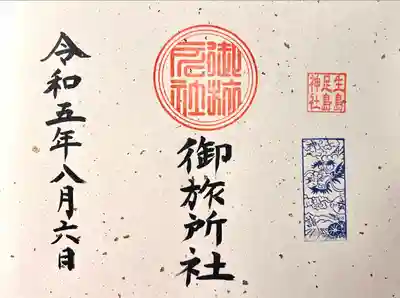 生島
足島
神社
御旅
所社
御旅所社
令和五年八月六日